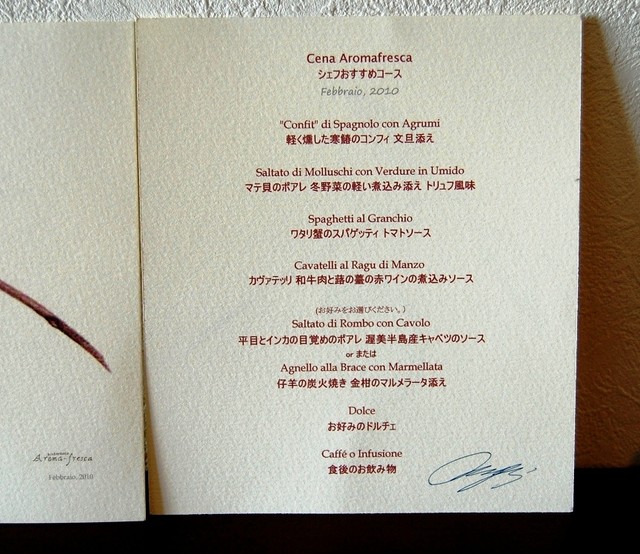 Cena Aromafresca
シェフおすすめコース
Febbraio, 2010
"Confit" di Spagnolo con Agrumi
軽く燻した寒鰆のコンフィ 文旦添え
Saltato di Molluschi con Verdure in Umido
マテ貝のポアレ 冬野菜の軽い煮込み添え トリュフ風味
Spaghetti al Granchio
ワタリ蟹のスパゲッティ トマトソース
Cavatelli al Ragu di Manzo
カヴァテッリ 和牛肉と蕗の薹の赤ワインの煮込みソース
(お好みをお選びください。)
Saltato di Rombo con Cavolo
平目とインカの目覚めのポアレ 渥美半島産キャベツのソース
or または
Agnello alla Brace con Marmellata
仔羊の炭火焼き 金柑のマルメラータ添え
Dolce
お好みのドルチェ
Caffé o Infusione
食後のお飲み物
Aroma-fresca
Febbraio, 2010